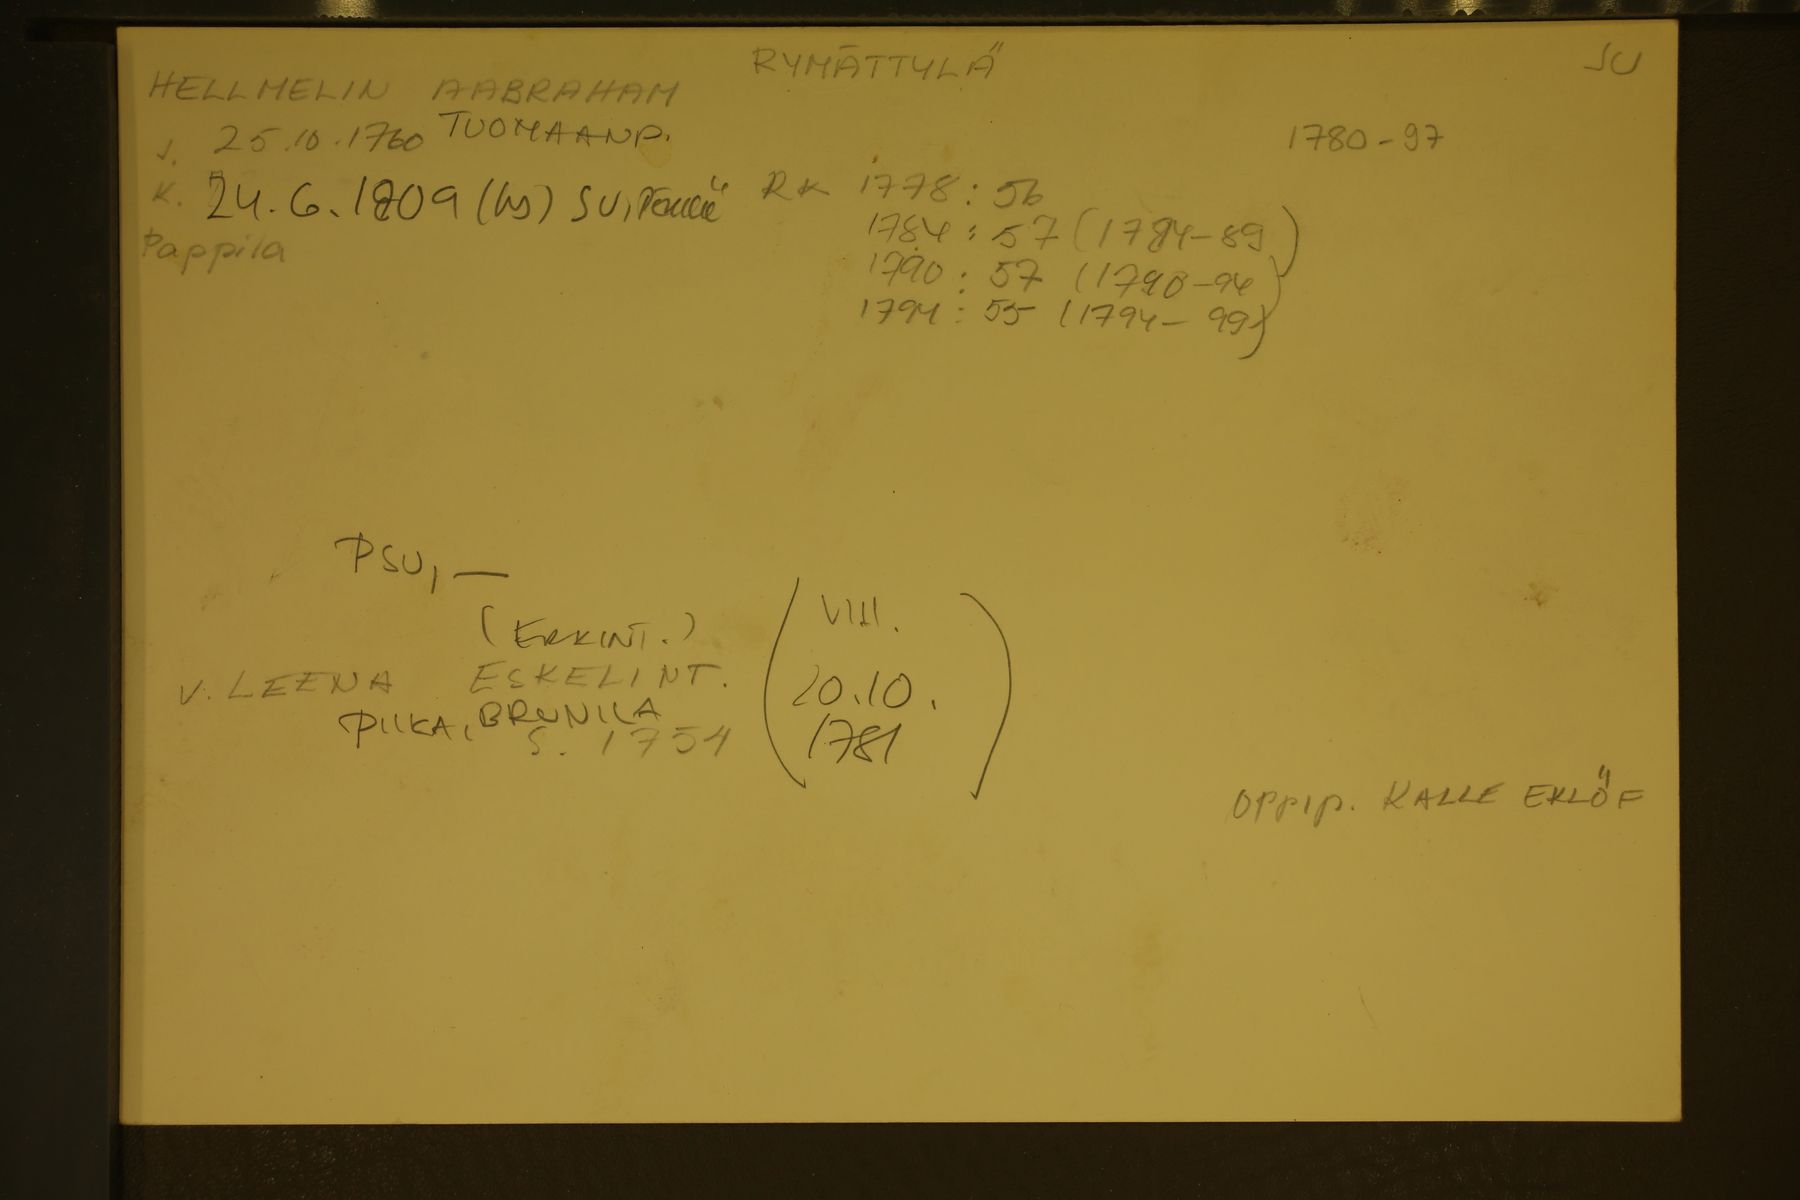 RYMÄTTYLÄ
SU
HELLMELIN AABRAHAM
TUOMAANP.
s. 25.10.1760
1780-97
K. 24.6.1809 (hs) SU,
Pappila
RK 1778: 56
1784: 57 (1784-89)
1790: 57 (1790-94)
1794: 55 (1794-99)
PSU, —
(ERKINT.)
V. LEENA ESKELINT.
PIIKA, BRUNILA
S. 1754
(VIII.
20.10.
1781)
OPPIP. KALLE EKLÖF